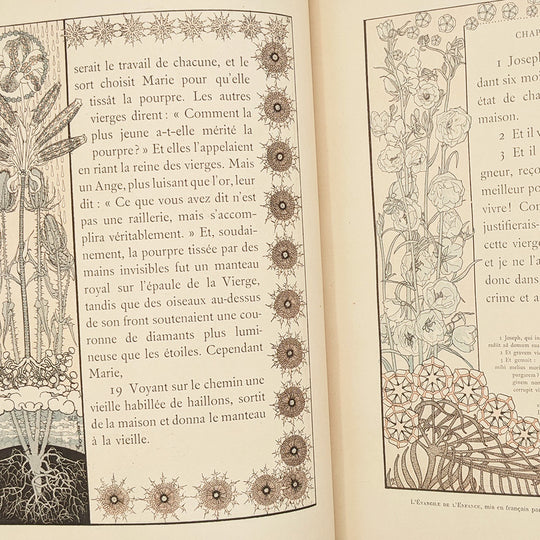 serait le travail de chacune, et le
sort choisit Marie pour qu'elle
tissât la pourpre. Les autres
vierges dirent : « Comment la
plus jeune a-t-elle mérité la
pourpre ? » Et elles l'appelaient
en riant la reine des vierges. Mais
un Ange, plus luisant que l'or, leur
dit : « Ce que vous avez dit n'est
pas une raillerie, mais s'accom-
plira véritablement. » Et, soudai-
nement, la pourpre tissée par des
mains invisibles fut un manteau
royal sur l'épaule de la Vierge,
tandis que des oiseaux au-dessus
de son front soutenaient une cou-
ronne de diamants plus lumi-
neuse que les étoiles. Cependant
Marie,
19 Voyant sur le chemin une
vieille habillée de haillons, sortit
de la maison et donna le manteau
à la vieille.
CHAP
1 Joseph,
dant six moi
état de cha
maison.
2 Et il v
3 Et il
gneur, reço
meilleur po
vivre ! Com
justifierais-
cette vierge
et je ne l'a
donc dans
crime et a
1 Joseph, qui
rediit ad domum
2 Et gravem vi
3 Et gemuit :
mihi melius mori
purgarem
ginem
corrupit
L'Évangile de l'Enfance, mis en français par